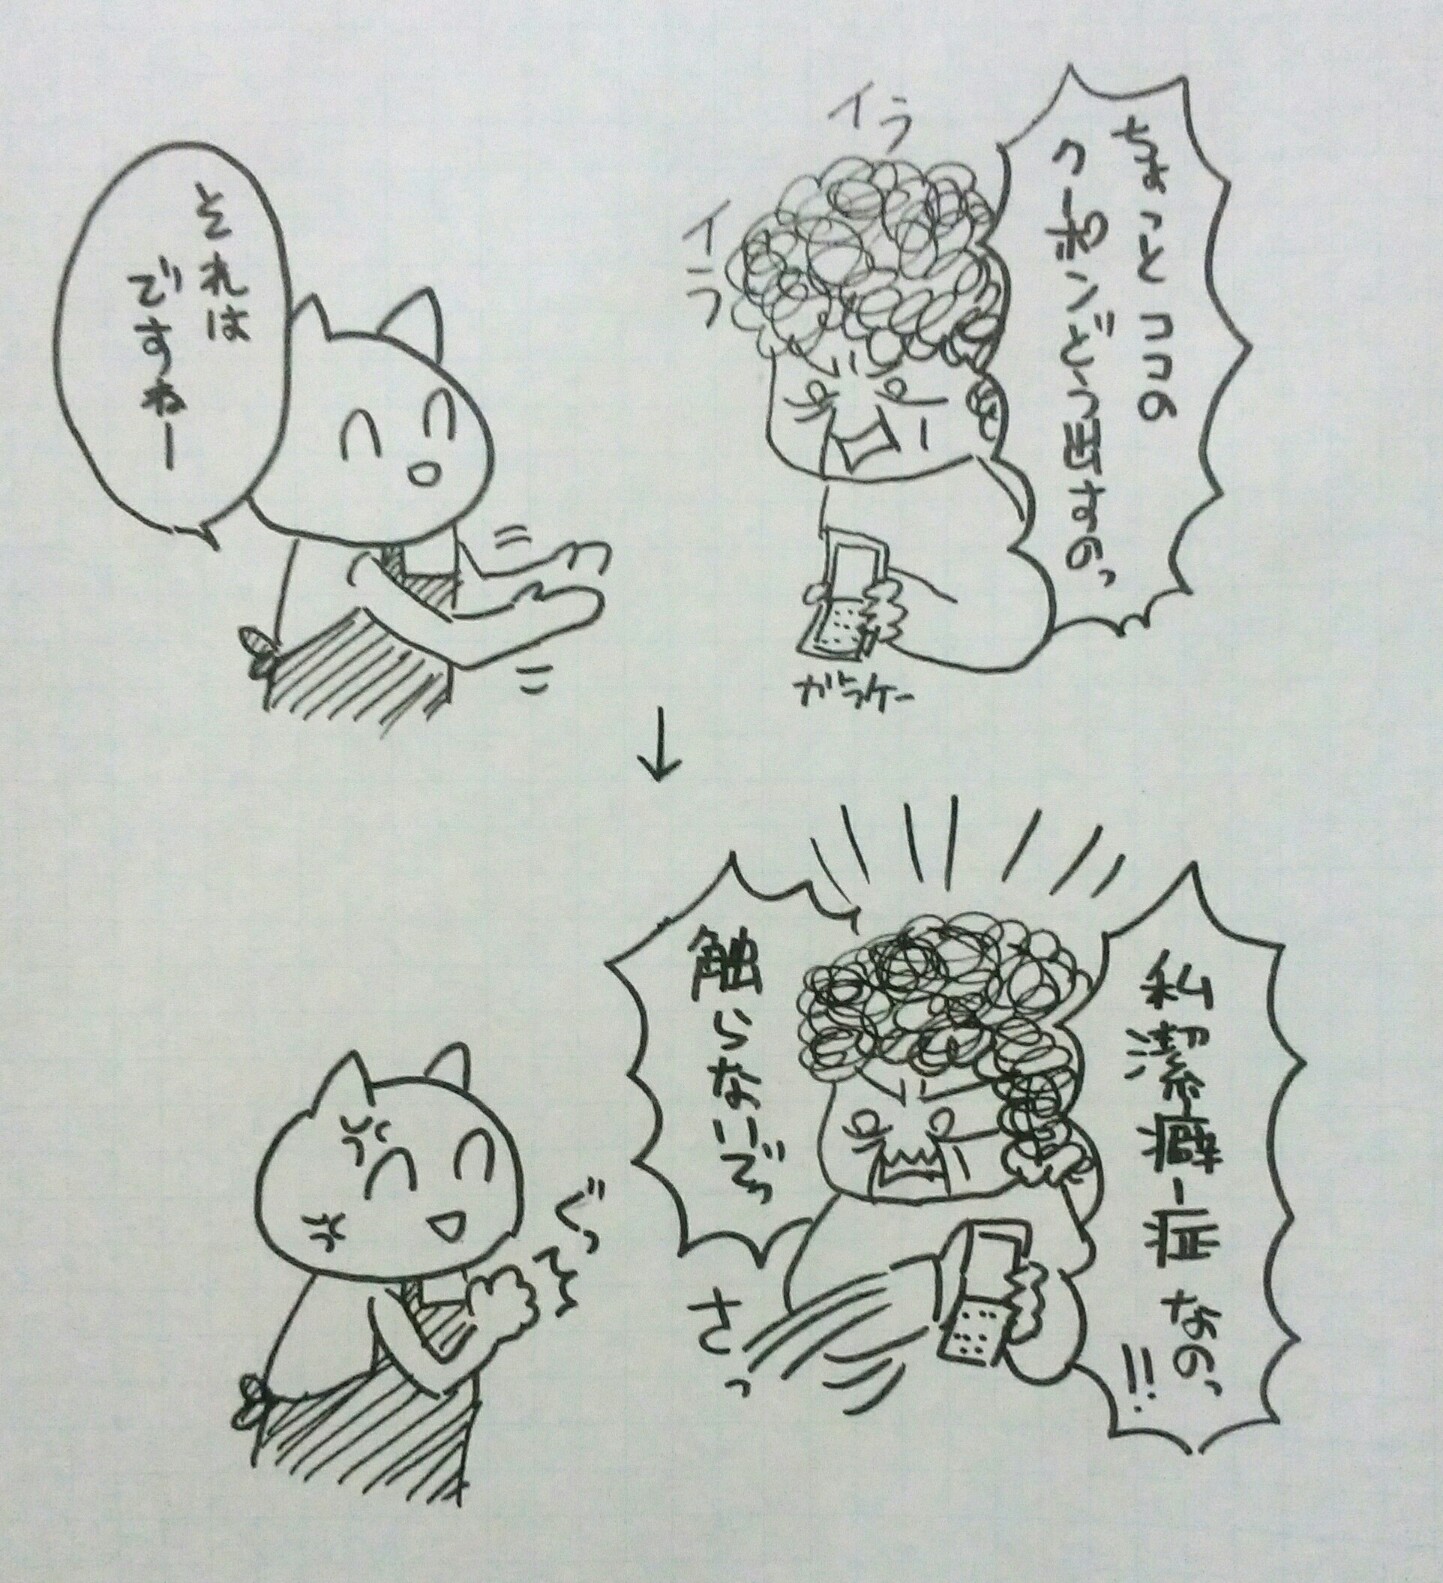 ちょっとココの
クーポンどう出すのっ
イラ
イラ
それは
ですねー
ガラケー
↓
私潔癖症なのっ
!!
触らないでっ
さっ
ぐっ